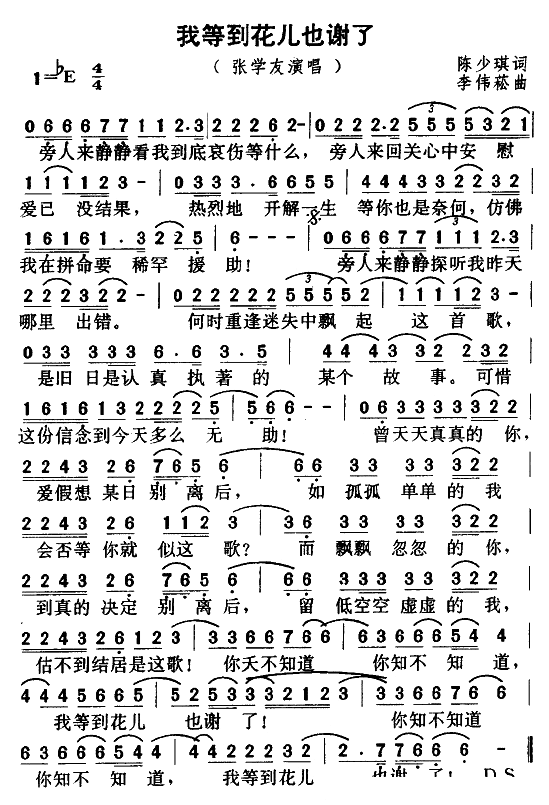 我等到花儿也谢了
（张学友演唱）
陈少琪词
李伟菘曲
1=♭E 4/4
0 6 6 6 7 7 1 1 2·3 2 2 2 6 2- 0 2 2 2·2 5 5 5 5 5 3 2 1
旁人来静静看我到底哀伤等什么，旁人来回关心中安慰
1 1 1 1 1 2 3 - 0 3 3 3·6 6 5 5 4 4 4 3 3 2 2 3 2
爱已没结果，热烈地开解一生等你也是奈何，仿佛
1 6 1 6 1·3 2 2 5 6 - - - 0 6 6 6 7 7 1 1 1 2·3
我在拼命要稀罕援助！旁人来静静探听我昨天
2 2 2 3 2 2 - 0 2 2 2 2 2 5 5 5 5 5 1 1 1 1 2 3
哪里出错。何时重逢迷失中飘起这首歌，
0 3 3 3 3 3 6·6 3·5 4 4 4 3 3 2 2 3 2
是旧日是认真执著的某个故事。可惜
1 6 1 6 1 3 2 2 2 2 5 5 6 6 - 0 6 3 3 3 3 3 3 2 2
这份信念到今天多么无助！曾天天真真的你，
2 2 4 3 2 6 7 6 5 6 6 6 3 3 3 3 3 2 2
爱假想某日别离后，如孤孤单单的我
2 2 4 3 2 6 1 1 2 3 3 3 3 3 3 3 3 2 2
会否等你就似这歌？而飘飘忽忽的你，
2 2 4 3 2 6 7 6 5 6 3 3 3 3 3 3 3 2 2
到真的决定别离后，留低空空虚虚的我，
2 2 4 3 2 6 1 2 3 3 3 6 6 7 6 6 3 6 3 6 6 6 5 4 4
估不到结居是这歌！你天不知道你知不知道，
4 4 4 5 6 5 4 5 2 5 3 3 3 2 1 2 3 3 3 3 6 6 7 6 6
我等到花儿也谢了！你知不知道
6 3 6 3 6 6 6 5 4 4 4 2 2 2 4 3 2 2 1 2·7 7 6 6 6 -
你知不知道，我等到花儿也谢了！D.S